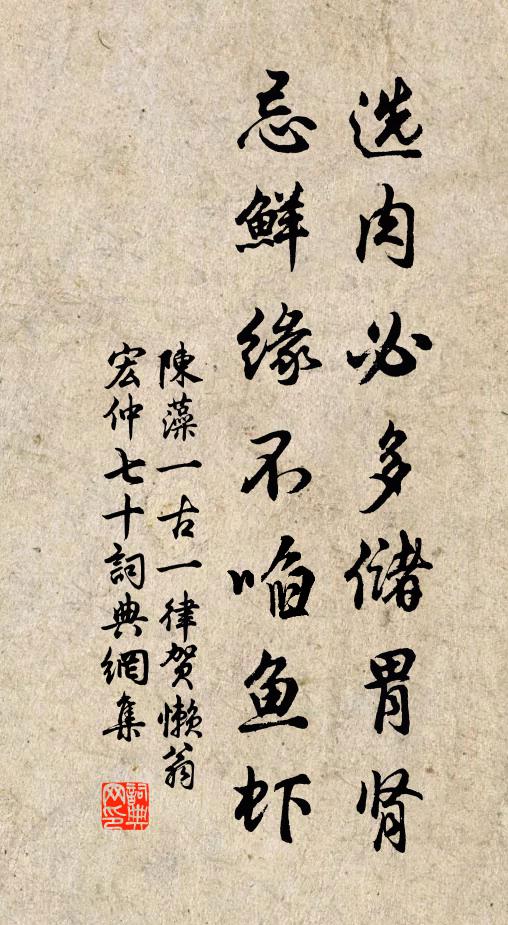 选肉必多储胃肾
忌鮮缘不啗鱼虾
陳藻一古一律贺懒翁
宏仲七十詞典網集
詞典网印